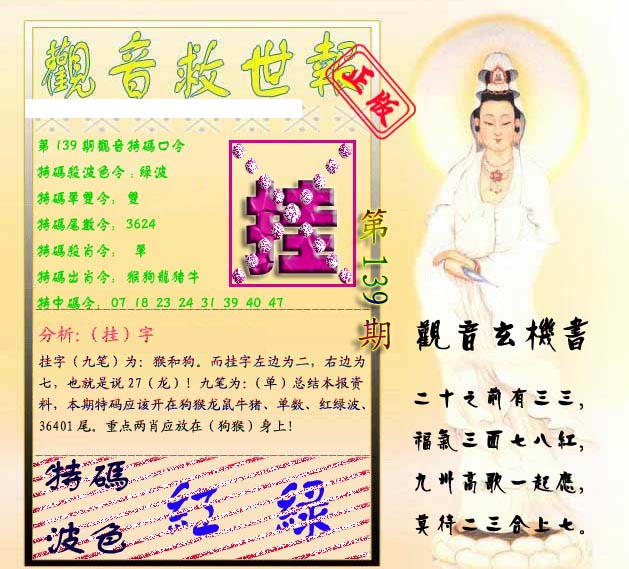 觀音救世報
正版
第139期觀音特碼口令
特碼殺波色令:綠波
特碼單雙令: 雙
特碼尾數令: 3624
特碼殺肖令: 單
特碼出肖令: 猴狗龍豬牛
特中碼令: 07 18 23 24 31 39 40 47
挂
第139期
分析:(挂)字
挂字(九笔)为:猴和狗。而挂字左边为二,右边为
七,也就是说27(龙)!九笔为:(单)总结本报资
料,本期特码应该开在狗猴龙鼠牛猪、单数、红绿波、
36401尾。重点两肖应放在(狗猴)身上!
特碼
波色
紅 綠
觀音玄機書
二十之前有三三,
福氣三面七八紅,
九州高歌一起應,
莫待二三合上七。